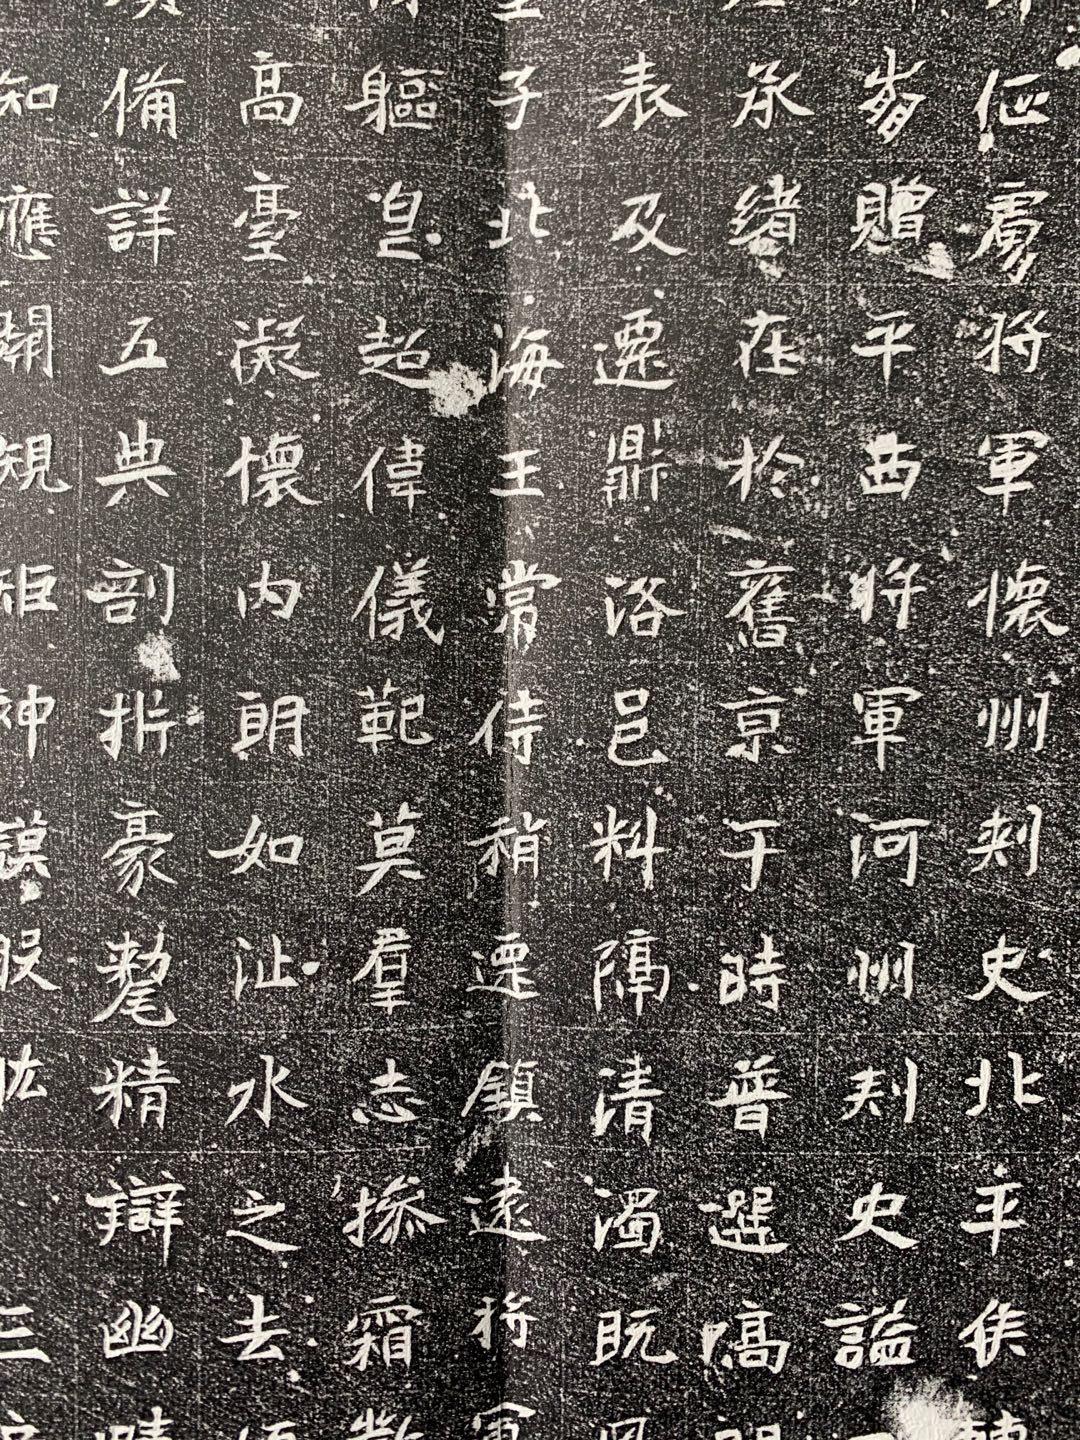 征虜將軍懷州刾史北平侯
贈平西將軍河州刾史謚
承緒在於舊京于時普選高
表及遷鼎洛邑料隔清濁既
子北海王常侍稍遷鎮遠將軍
軀皃超偉儀範莫群志操霜
高臺凝懷內朗如沚水之去
備詳五典剖析豪氂精辯幽
知應開規矩神謨股肱三